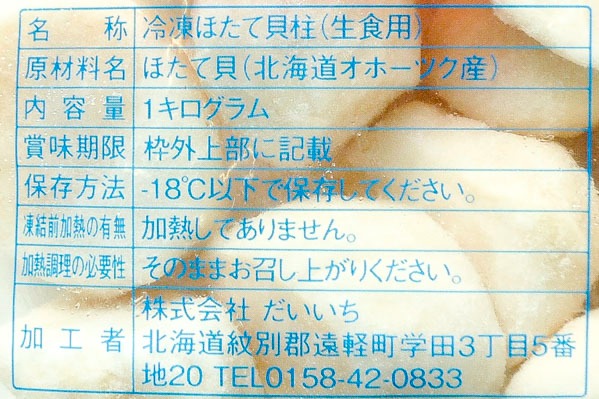 名称 冷凍ほたて貝柱(生食用)
原材料名 ほたて貝(北海道オホーツク産)
内容量 1キログラム
賞味期限 枠外上部に記載
保存方法 -18℃以下で保存してください。
凍結前加熱の有無 加熱してありません。
加熱調理の必要性 そのままお召し上がりください。
加工者 株式会社 だいいち
北海道紋別郡遠軽町学田3丁目5番
地20 TEL0158-42-0833